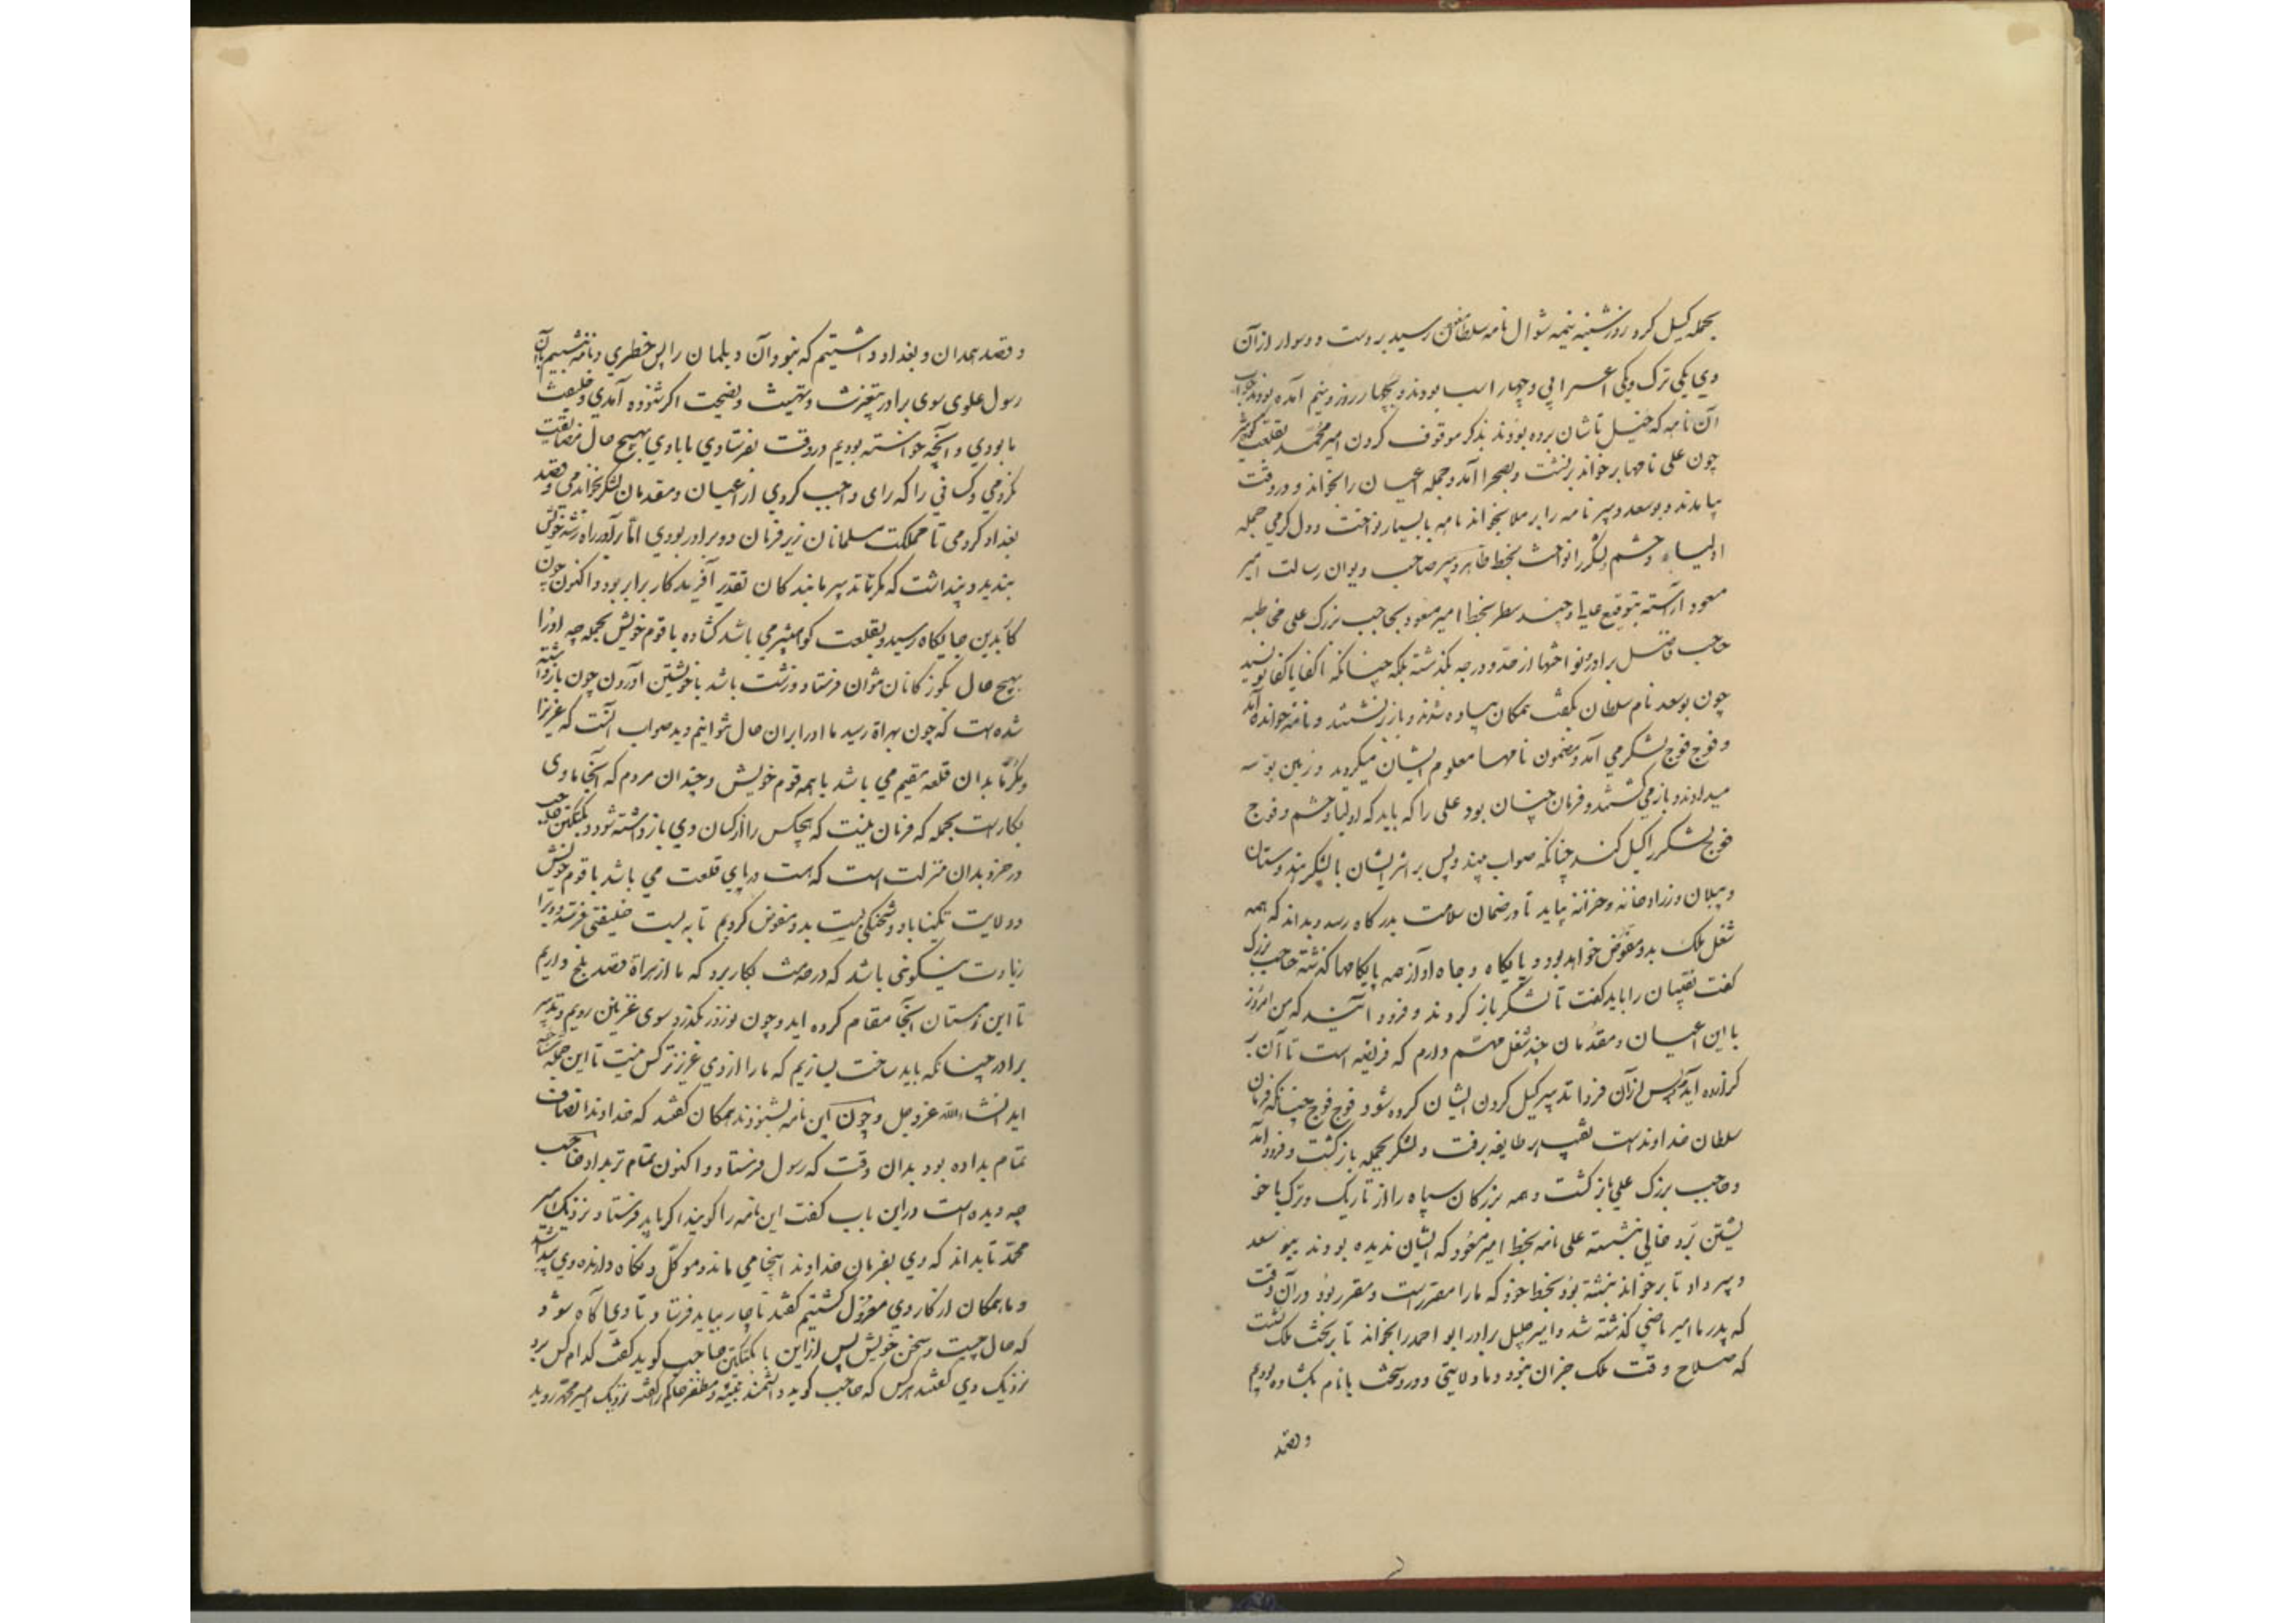 بجمله گسیل کرد روز شنبه نیمه شوال نامه سلطان مسعود رسید بر دست دو سوار از آن
وی یکی ترک و یکی اعرابی و چهار اسب بودند و بچهار روز و نیم آمده بودند جواب
آن نامه که خیل تاشان برده بودند بذکر موقوف کردن امیر محمد بقلعت کوهشیر
چون علی نامها بر خواند برنشست و بصحرا آمد و جمله اعیان را بخواند و در وقت
بیامدند و بوسعد دبیر نامه را بر ملا بخواند نامه با بسیار نواخت و دل گرمی جمله
اولیاء و حشم و لشکر را نواخت بخط طاهر دبیر صاحب دیوان رسالت امیر
مسعود آراسته بتوقیع عالی و چند سطر بخط امیر مسعود بحاجب بزرگ علی مخاطبه
حاجب فاضل برادر و نواختها از حد و درجه بگذشته بلکه چنانکه اکفا باکفا نویسند
چون بوسعد نام سلطان بگفت همگان پیاده شدند و باز برنشستند و نامه خوانده آمد
و فوج فوج لشکر می آمد و مضمون نامها معلوم ایشان میکردید و زمین بوسه
میدادند و باز می گشتند و فرمان چنان بود علی را که باید که اولیا و حشم و فوج
فوج لشکر را گسیل کند چنانکه صواب بیند و پس بر اثر ایشان با لشکر هندوستان
و پیلان و زرادخانه و خزانه بیاید تا در ضمان سلامت بدرگاه رسد و بداند که همه
شغل ملک بدو مفوض خواهد بود و پایگاه و جاه او از همه پایگاهها گذشته حاجب بزرگ
گفت نقیبان را باید گفت تا لشکر باز گردند و فرود آیند که من امروز
با این اعیان و مقدمان چند شغل مهم دارم که فریضه است تا آن بر
گزارده آید و پس از آن فردا تدبیر گسیل کردن ایشان کرده شود فوج فوج چنانکه فرمان
سلطان خداوند است نقیب هر طایفه برفت و لشکر بجمله باز گشت و فرود آمد
و حاجب بزرگ علی باز گشت و همه بزرگان سپاه را از تازیک و ترک با خو
یشتن برد و خالی بنشسته علی نامه بخط امیر مسعود که ایشان ندیده بودند ببو سعد
دبیر داد تا بر خواند نبشته بود بخط خود که ما را مقرر است و مقرر بود در آن وقت
که پدر ما امیر ماضی گذشته شد و امیر جلیل برادر ابو احمد را بخواند تا بر تخت ملک نشست
که صلاح وقت ملک جز آن نبود و ما ولایتی دور سخت با نام بگشاده بودیم
و قصد
و قصد همدان و بغداد داشتیم که نبود آن دیلمان را پس خطری و نامه نبشتیم با آن
رسول علوی سوی برادر بتعزیت و تهنیت و نصیحت اگر شنوده آمدی و خلیفت
ما بودی و آنچه خواسته بودیم در وقت بفرستادی ما با وی بهیچ حال مضایقت
نکردمی و کسانی را که رای واجب کردی از اعیان و مقدمان لشکر بخواندمی و قصد
بغداد کردمی تا مملکت مسلمانان زیر فرمان دو برادر بودی اما برادر راه رشد خویش
بندید و پنداشت که مگر با تدبیر ما بندگان تقدیر آفریدگار برابر بود و اکنون چون
کار بدین جایگاه رسید و بقلعت کوهشیر می باشد گشاده با قوم خویش بجمله چه او را
بهیچ حال بگوزگانان نتوان فرستاد و زشت باشد با خویشتن آوردن چون باز داشته
شده است که چون بهراة رسید ما او را بر آن حال نتوانیم دید صواب آنست که عزیزا
و مکرما بدان قلعه مقیم می باشد با همه قوم خویش و چندان مردم که آنجا با وی
بکارست بجمله که فرمان نیست که هیچکس را از کسان وی باز داشته شود و بکتکین حاجب
در خرد بدان منزلت است که هست در پای قلعت می باشد با قوم خویش
و ولایت تکیناباد و شحنگی بست بدو مفوض کردیم تا به بست خلیفتی فرستد و ویرا
زیادت نیکوئی باشد که در خدمت بکار برد که ما از هراة قصد بلخ داریم
تا این زمستان آنجا مقام کرده آید و چون نوروز بگذرد سوی غزنین رویم و تدبیر
برادر چنانکه باید ساخت بسازیم که ما را از وی عزیزتر کس نیست تا این جمله شناخته
آید انشاءالله عزوجل و چون این نامه بشنودند همگان گفتند که خداوند انصاف
تمام بداده بود بدان وقت که رسول فرستاد و اکنون تمام تر بداد حاجب
چه دیده است در این باب گفت این نامه را گویند اگر باید فرستاد نزدیک امیر
محمد تا بداند که وی بفرمان خداوند اینجا می ماند و موکل و نگاه دارنده وی پیدا شد
و ما همگان از کار وی معزول گشتیم گفتند ناچار بباید فرستاد تا وی آگاه شود
که حال چیست و سخن خویش پس از این با بکتکین حاجب گوید گفت کدام کس برد
نزدیک وی گفتند هر کس که حاجب گوید دانشمند نبیه و مظفر حاکم را گفت نزدیک امیر محمد روید